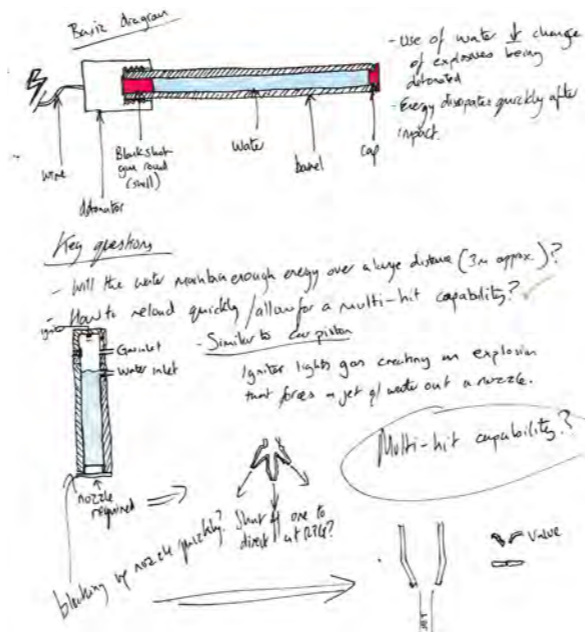 Basic diagram
- Use of water ↓ change
of explosives being
detonated
- Energy dissipates quickly after
impact.
wire
detonator
Blank shot
gun round
(shell)
Water
barrel
cap
Key questions
- Will the water maintain enough energy over a large distance (3m approx.)?
- How to reload quickly / allow for a multi-hit capability?
- Similar to car piston
Igniter lights gas creating an explosion
that forces a jet of water out a nozzle.
Gas inlet
Water inlet
nozzle
required
Multi-hit capability?
blocking of nozzle quickly?
Shut
one to
direct at RPG?
Valve